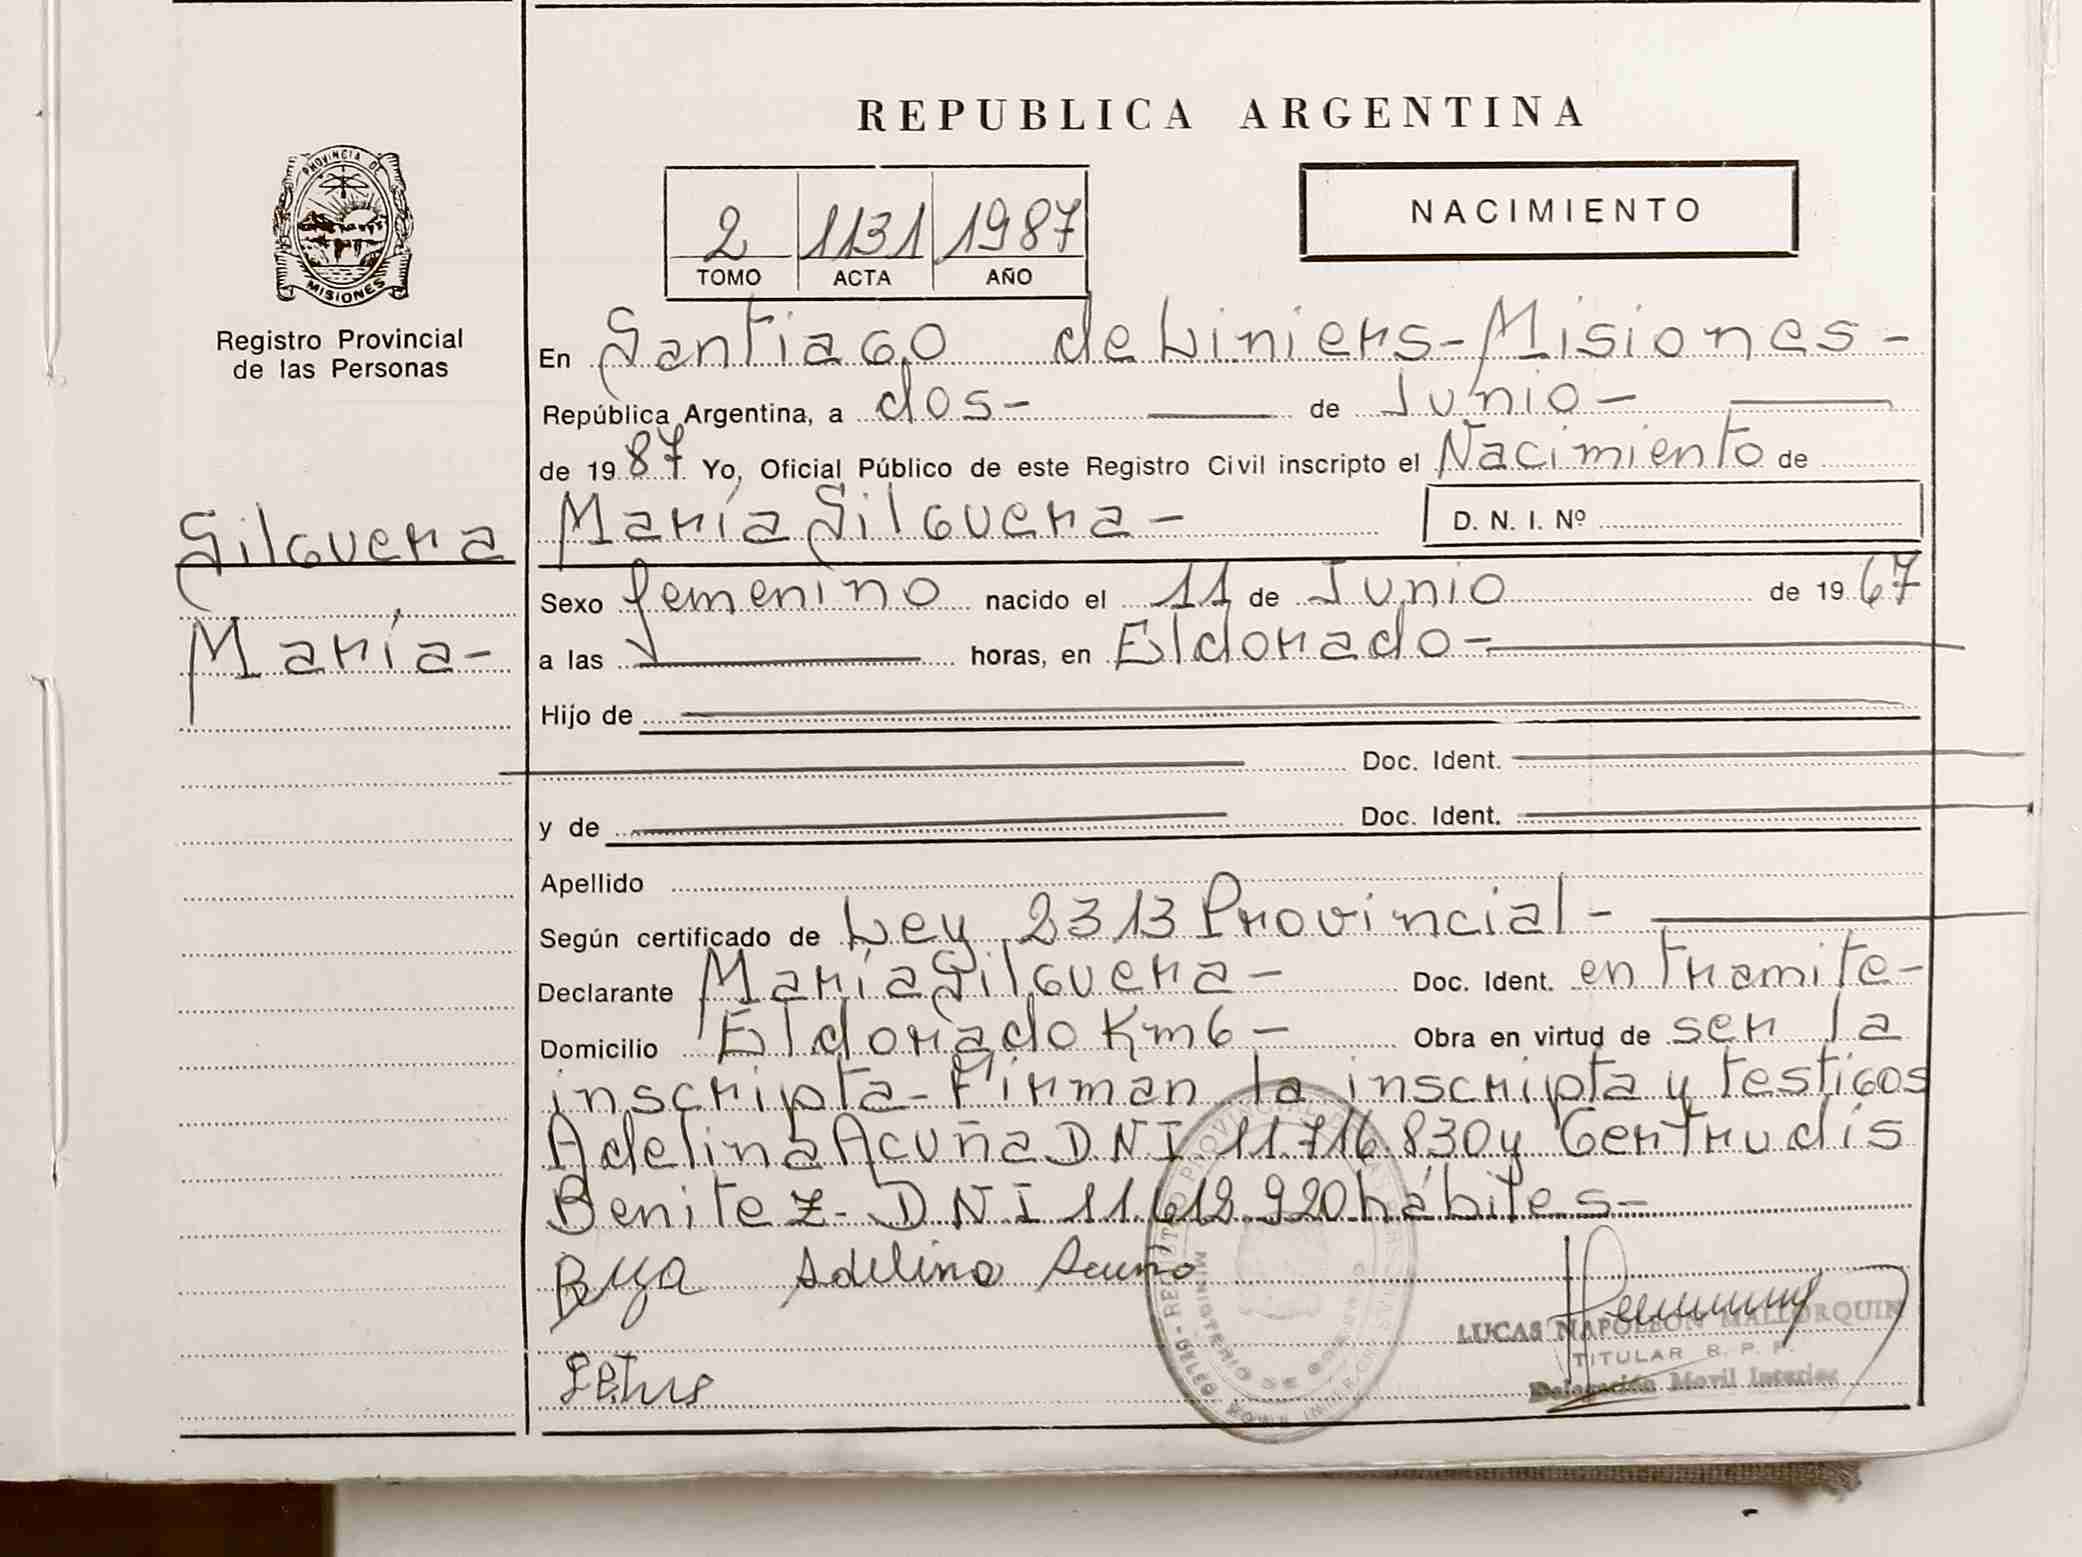 REPUBLICA ARGENTINA
PROVINCIA DE
MISIONES
Registro Provincial
de las Personas
2 1131 1987
TOMO ACTA AÑO
NACIMIENTO
En Santiago de Liniers - Misiones -
República Argentina, a dos - de Junio -
de 1987 Yo, Oficial Público de este Registro Civil inscripto el Nacimiento de
Silguera
María -
María Silguera - D. N. I. Nº
Sexo femenino nacido el 11 de Junio de 1967
a las horas, en Eldorado -
Hijo de
Doc. Ident.
y de Doc. Ident.
Apellido
Según certificado de Ley 2313 Provincial -
Declarante María Silguera - Doc. Ident. en tramite -
Domicilio Eldorado Km 6 - Obra en virtud de ser la
inscripta - Firman la inscripta y testigos
Adelina Acuña D N I 11.716.830 y Gertrudis
Benitez - D N I 11.612.920 hábiles -
Adelina Acuña
LUCAS NAPOLEON MALLORQUIN
TITULAR B. P. P.
Delegación Movil Interior